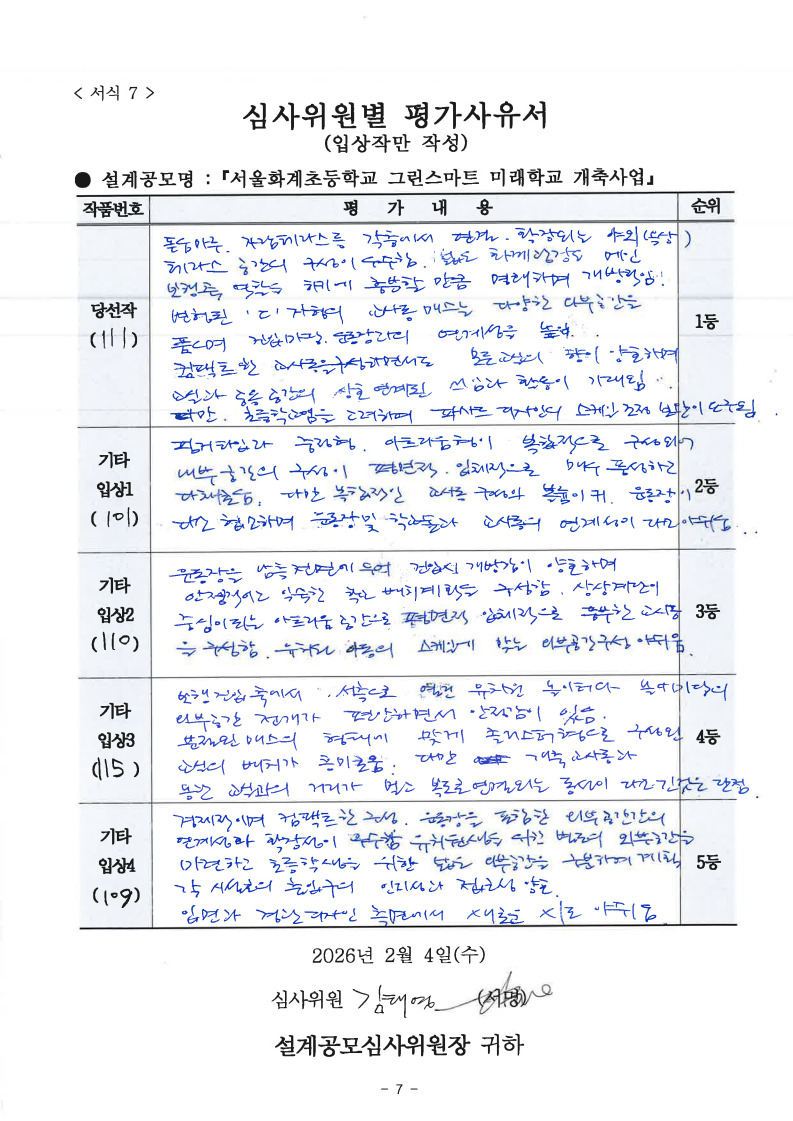 < 서식 7 >
심사위원별 평가사유서
(입상작만 작성)
● 설계공모명 : 『서울화계초등학교 그린스마트 미래학교 개축사업』
작품번호 평 가 내 용 순위
당선작
(111)
돌봄마루, 자람테라스 등 각층에서 연결, 확장되는 야외(옥상)
테라스 공간의 구성이 우수함. 넓은 화계광장은 메인
보행축 역할을 하기에 충분할 만큼 명쾌하며 개방적임.
변형된 'ㄷ'자형의 교사동 매스는 다양한 외부공간을
품으며 진입마당, 운동장과의 연계성을 높임.
컴팩트한 교사동을 구성하면서도 모든 교실의 향이 양호하며
교실과 공용 공간의 상호 연계된 쓰임과 활동이 기대됨.
다만, 초등학교임을 고려하여 파사드 디자인의 스케일 조정 방안이 요구됨.
1등
기타
입상1
(101)
핑거타입과 중정형, 아트리움형이 복합적으로 구성되어
내부공간의 구성이 평면적, 입체적으로 매우 풍성하고
다채로움. 다만 복합적인 교사동 구성의 볼륨이 커, 운동장이
다소 협소하며 운동장 및 학교들과 교사동의 연계성이 다소 아쉬움.
2등
기타
입상2
(110)
운동장을 남측 전면에 두어 진입시 개방감이 양호하며
안정적이고 익숙한 학교 배치계획을 구성함. 상상계단이
중심이 되는 아트리움 공간으로 평면적 입체적으로 풍부한 교사동
을 구성함. 유치원 아동의 스케일에 맞는 외부공간구성 아쉬움.
3등
기타
입상3
(115)
보행진입축에서 서측으로 열린 유치원 놀이터와 놀이마당의
외부공간 전개가 편안하면서 안정감이 있음.
분절된 매스의 형태에 맞게 클러스터형으로 구성된
교실의 배치가 흥미로움. 다만 개축 교사동과
기존 교실과의 거리가 멀고 복도로 연결되는 동선이 다소 긴것은 단점.
4등
기타
입상4
(109)
경제적이며 컴팩트한 구성. 운동장을 포함한 외부공간간의
연계성과 확장성이 우수함 유치원생을 위한 별도의 외부공간을
마련하고 초등학생을 위한 넓은 외부공간을 구분하여 계획
각 시설로의 출입구의 인지성과 접근성 양호.
입면과 경관디자인 측면에서 새로운 시도 아쉬움
5등
2026년 2월 4일(수)
심사위원 김태영 (서명)
설계공모심사위원장 귀하
- 7 -